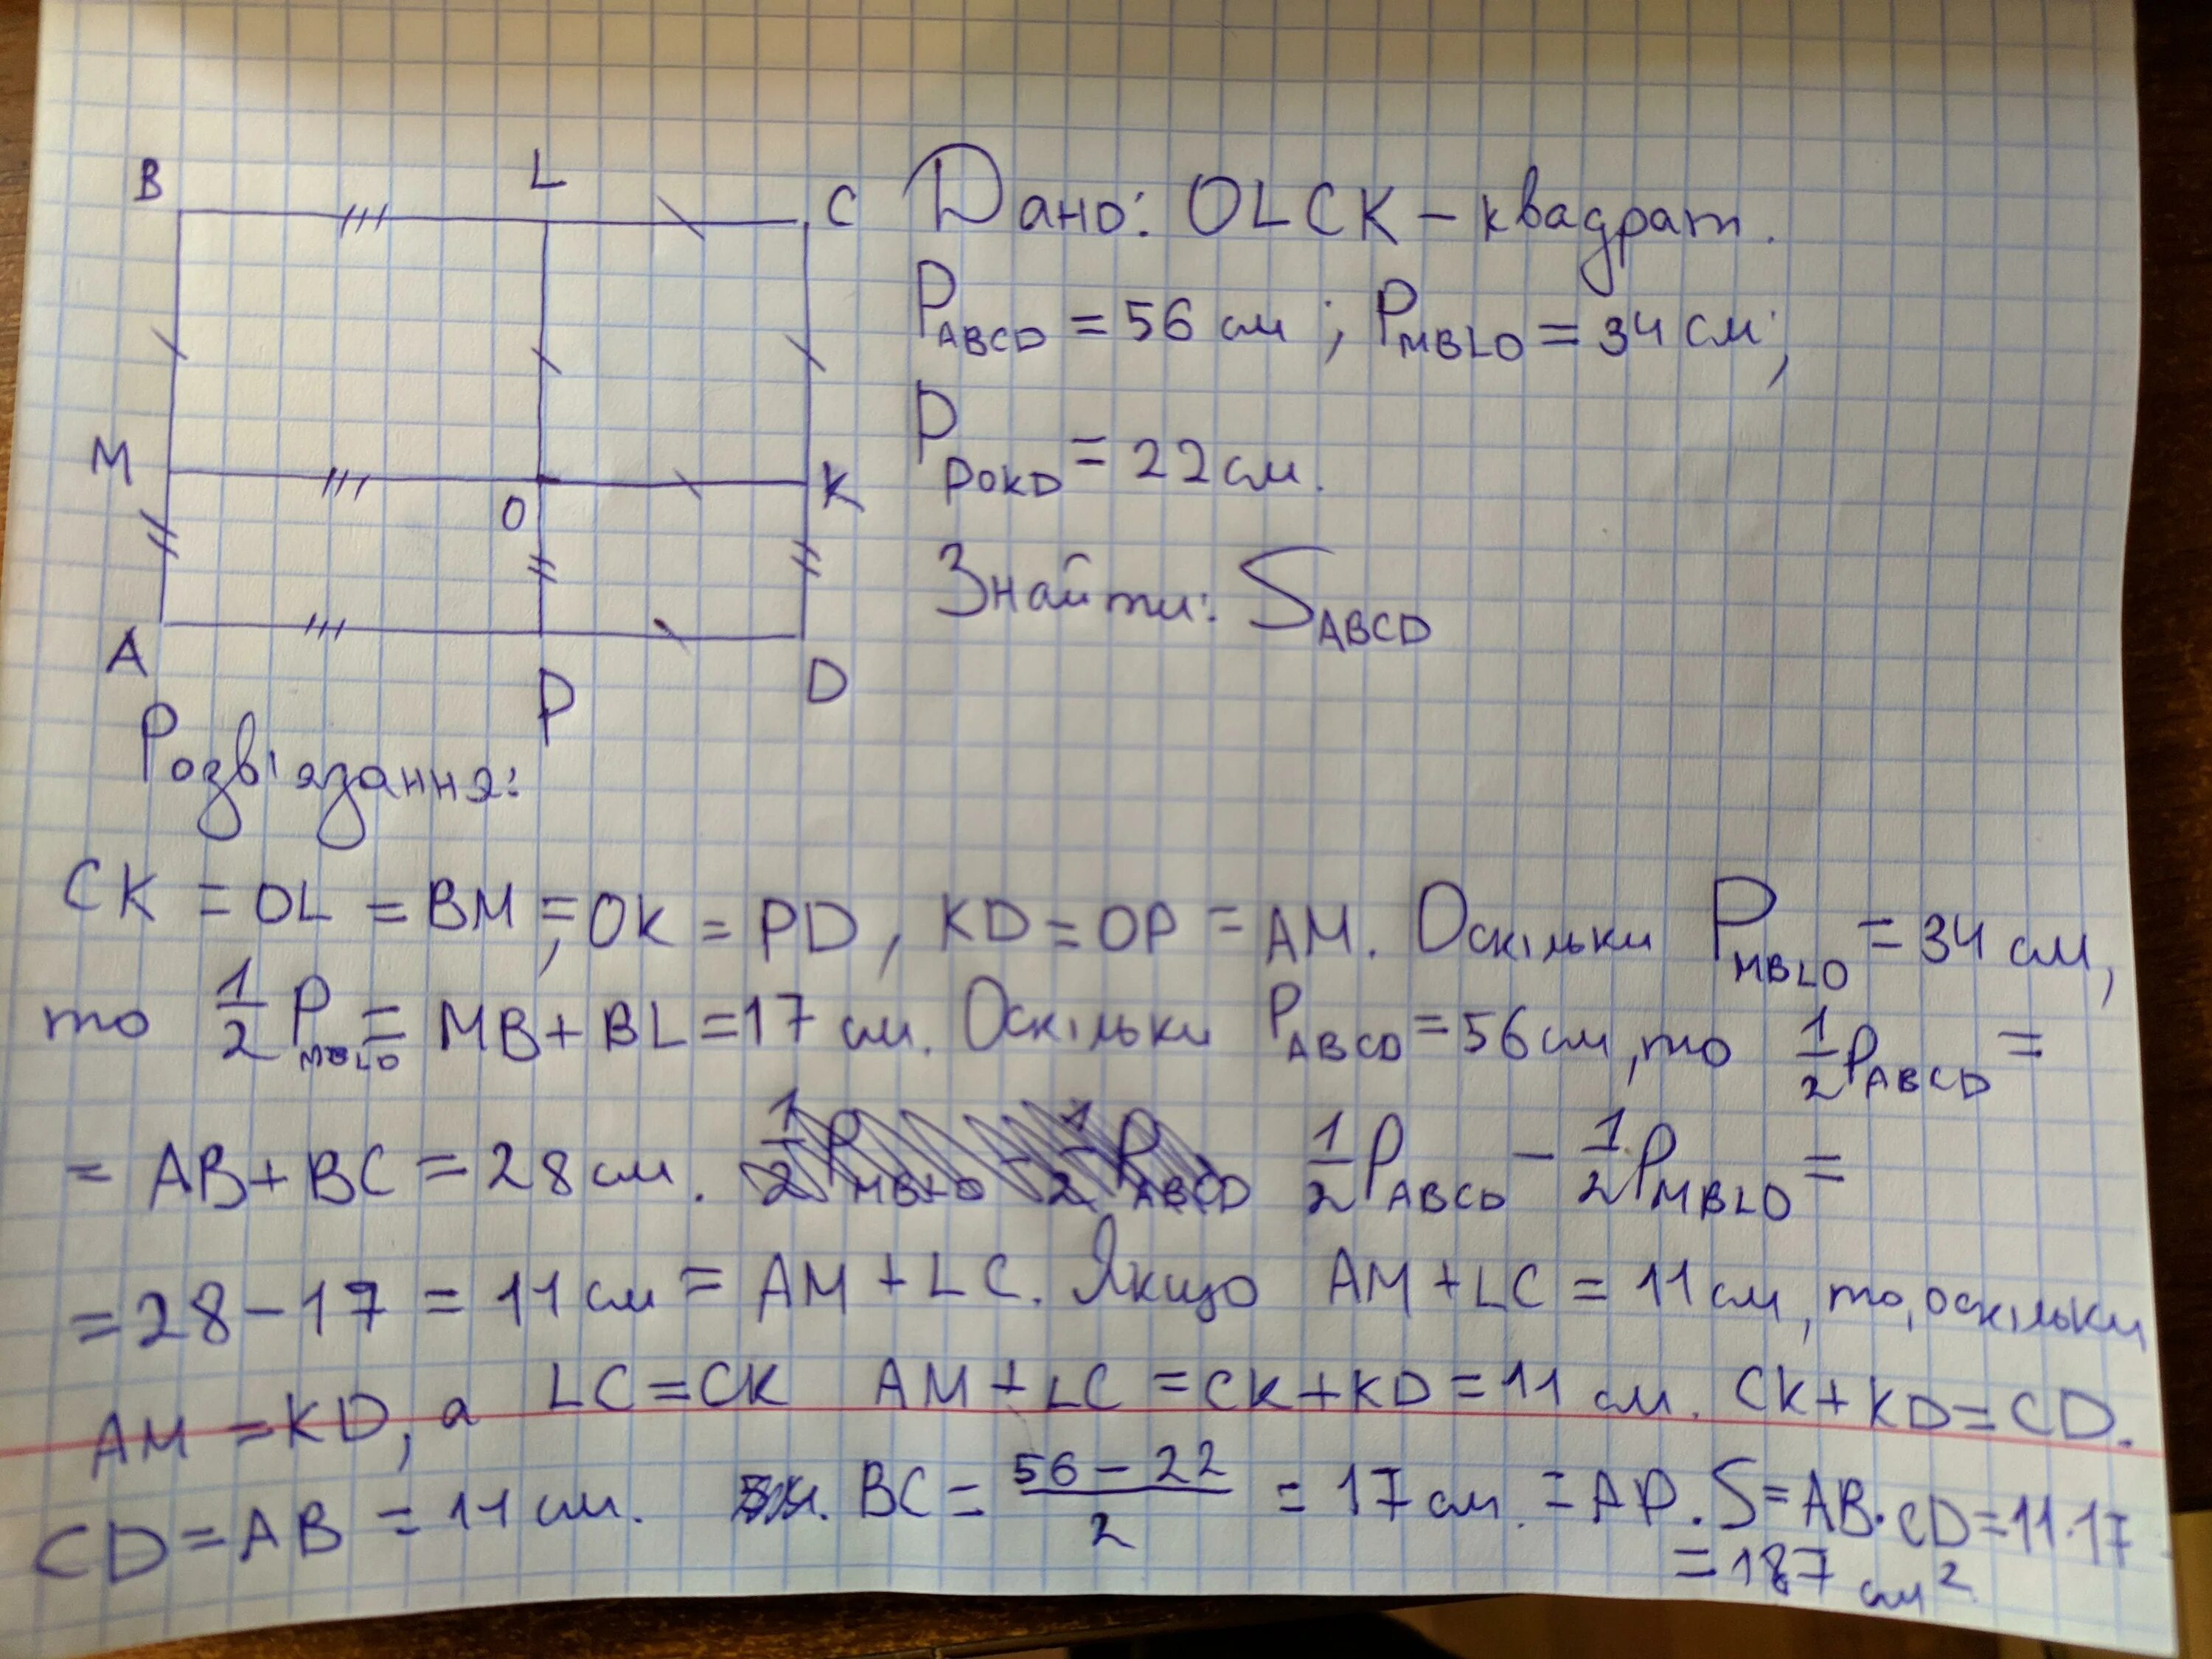 B L C
M O K
A P D
Дано: OLCK – квадрат.
P_ABCD = 56 см; P_MBLO = 34 см;
P_POKD = 22 см.
Знайти: S_ABCD
Розв'язання:
CK = OL = BM = OK = PD, KD = OP = AM. Оскільки P_MBLO = 34 см,
то 1/2 P_MBLO = MB + BL = 17 см. Оскільки P_ABCD = 56 см, то 1/2 P_ABCD =
= AB + BC = 28 см. 1/2 P_ABCD – 1/2 P_MBLO =
= 28 – 17 = 11 см = AM + LC. Якщо AM + LC = 11 см, то, оскільки
AM = KD, а LC = CK AM + LC = CK + KD = 11 см. CK + KD = CD.
CD = AB = 11 см. BC = (56 – 22)/2 = 17 см. = AD. S = AB · CD = 11 · 17
= 187 см²